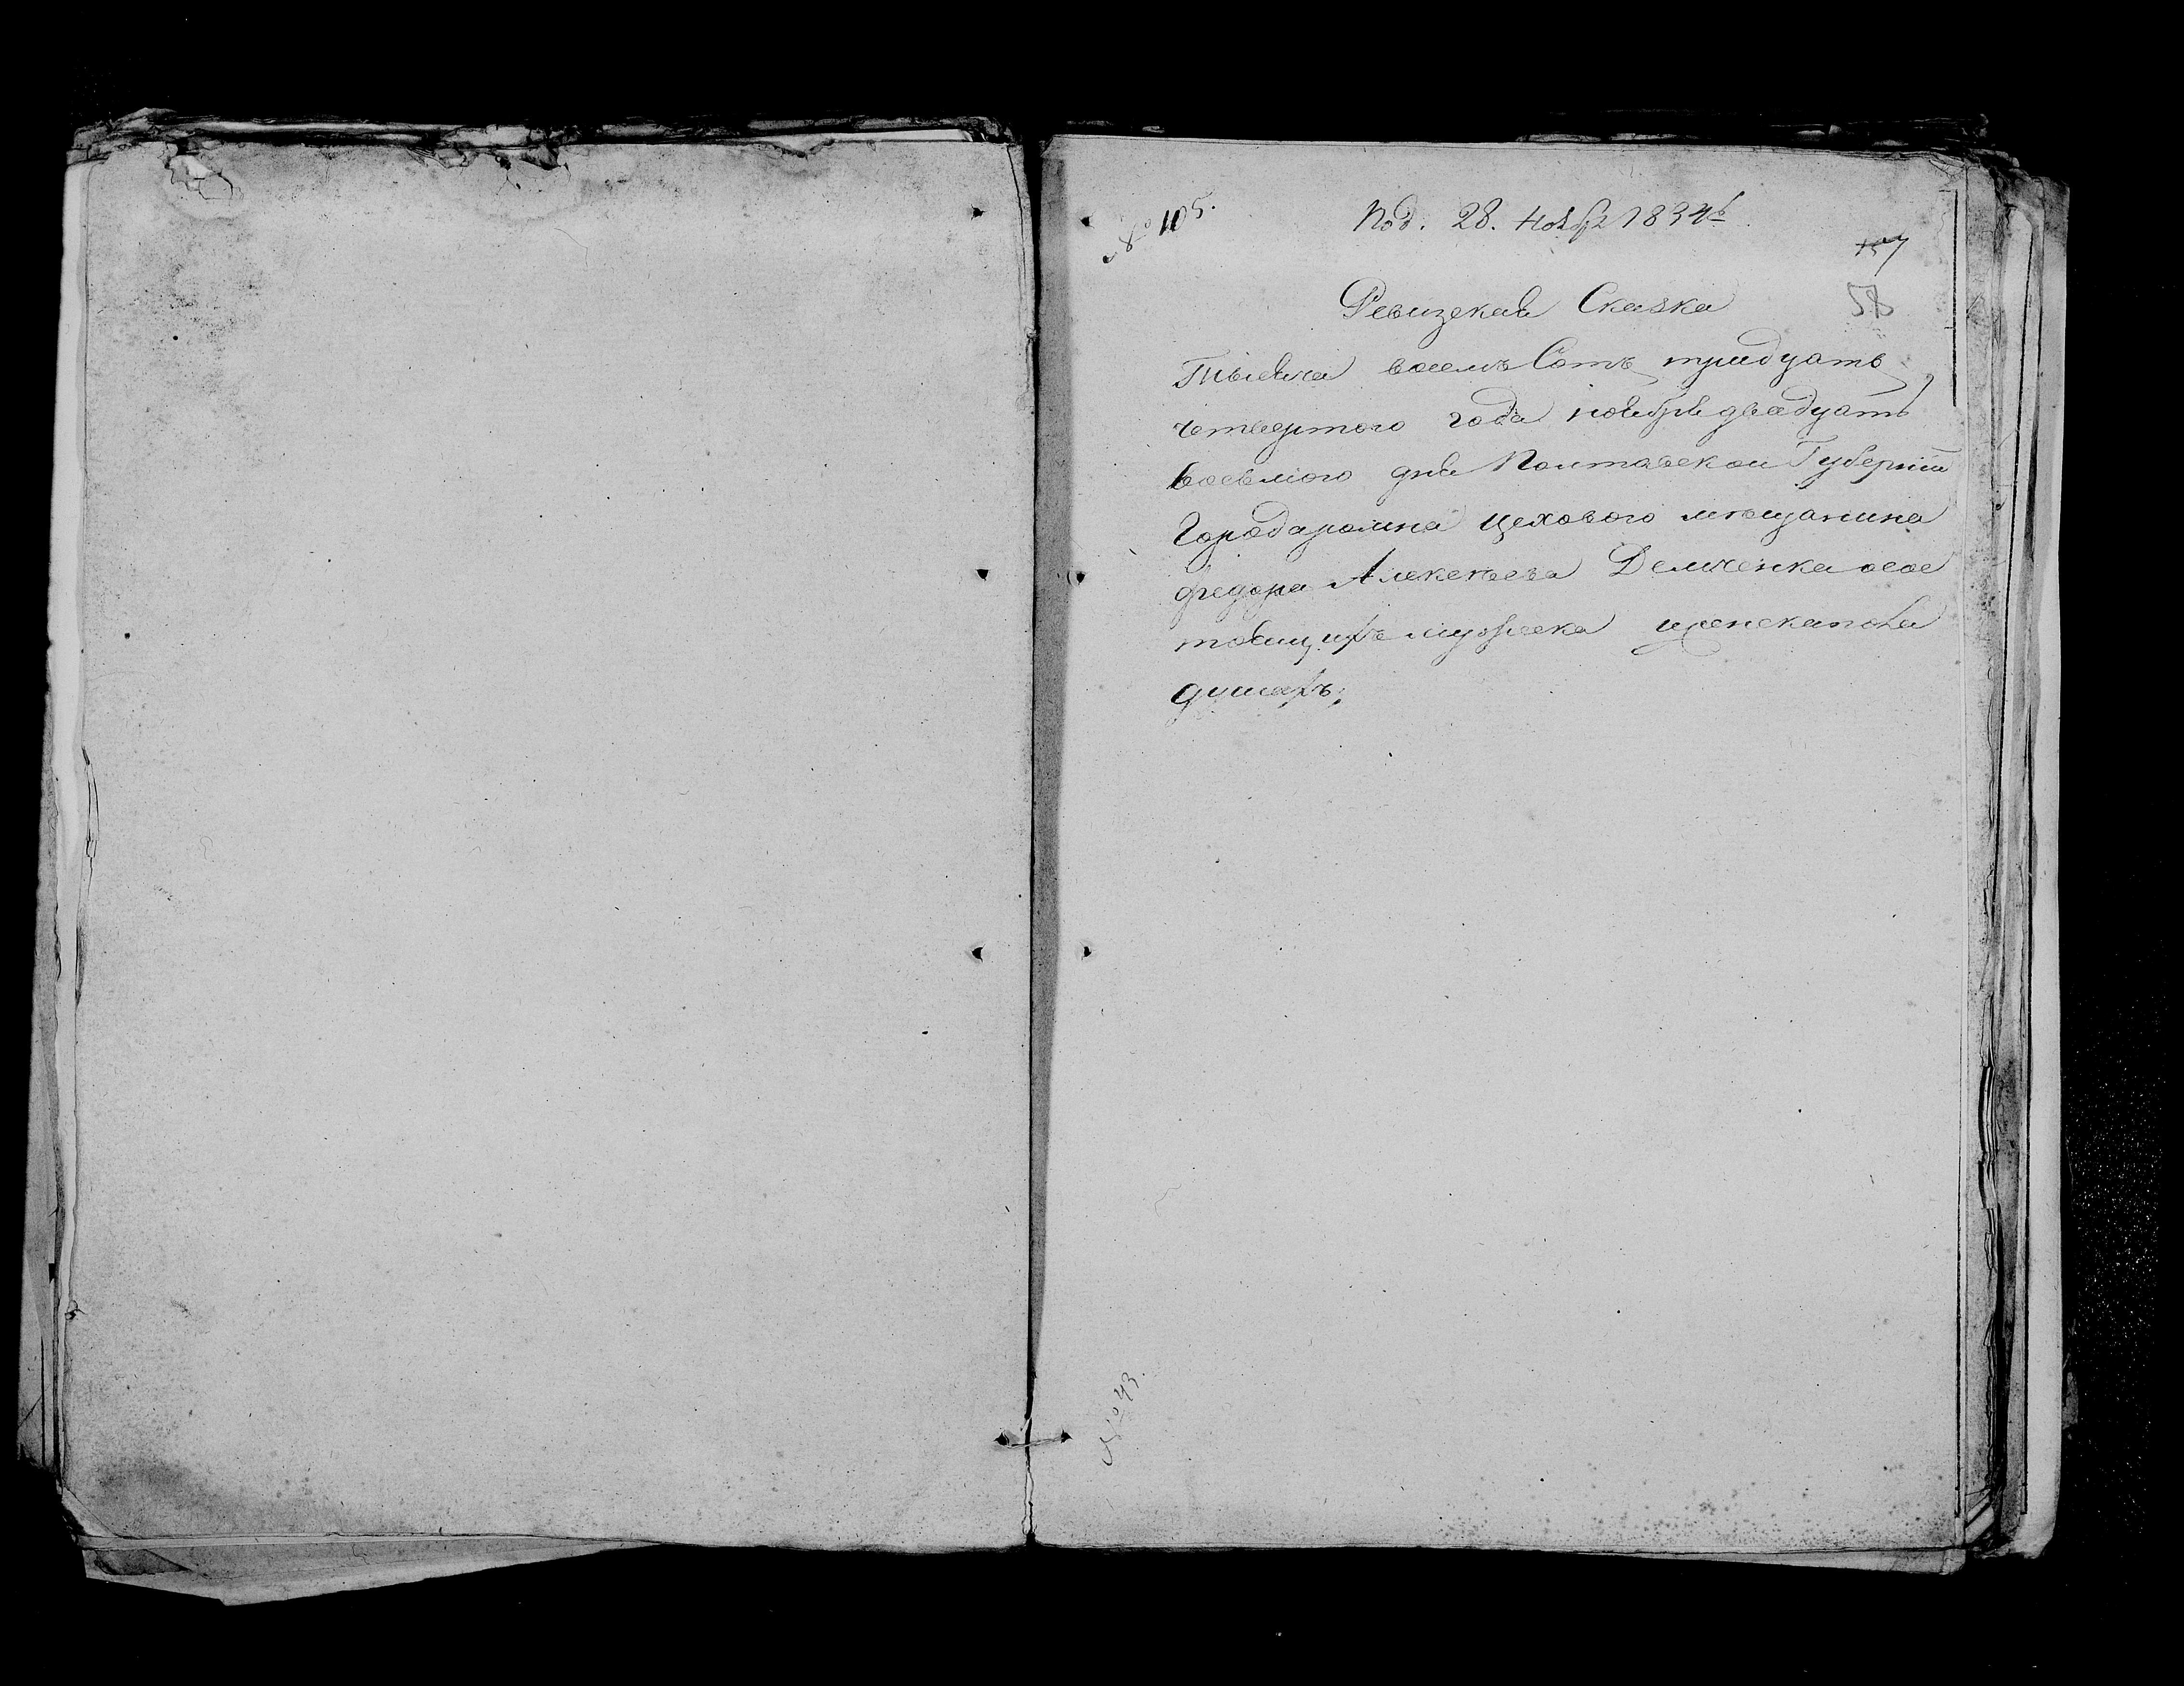 № 105.
Под. 28. Ноября 1834 г.
157
58
Ревизская Сказка
Тысяча восемъ Сотъ тридцать
четвертого года ноября двадцать
восьмого дня Полтавской Губернии
Города ромна цехового мещанина
федора Алексеева Демченка осос
тоящихъ мужеска иженска пола
душахъ;
№ 43.